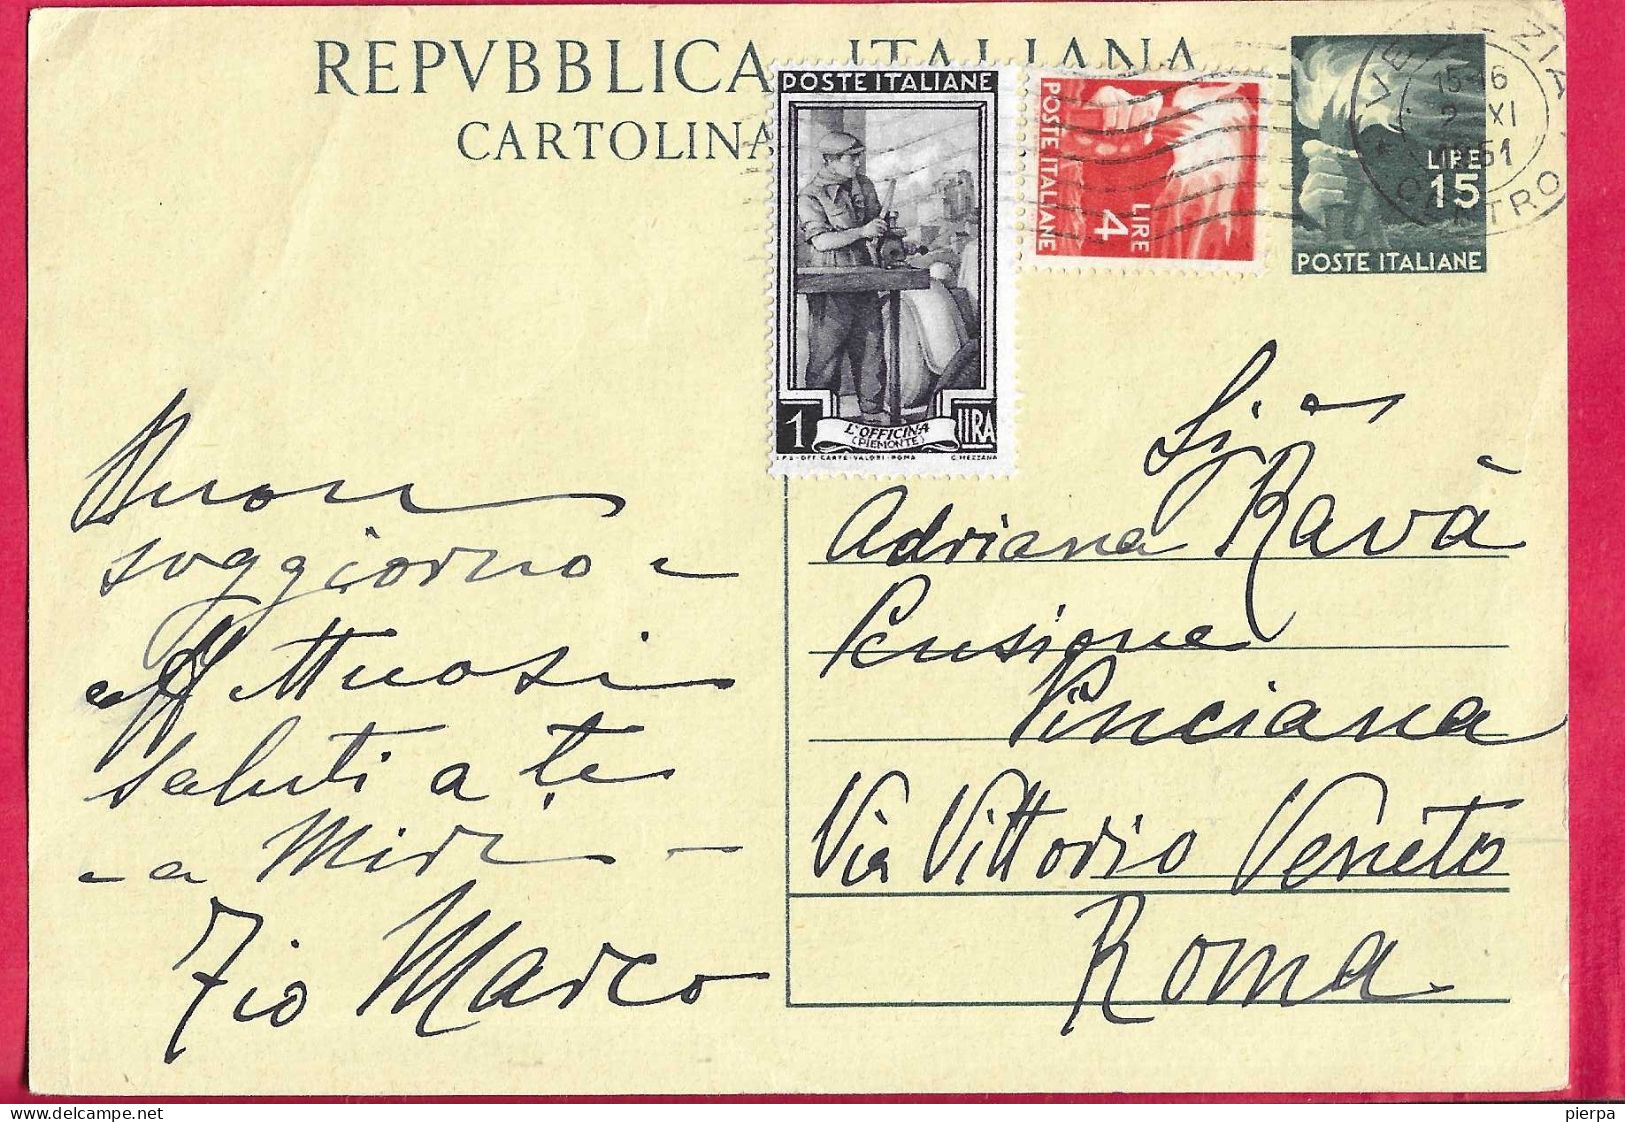 REPVBBLICA ITALIANA
CARTOLINA
POSTE ITALIANE
1
L'OFFICINA
(PIEMONTE)
LIRA
I.P.S-OFF. CARTE-VALORI-ROMA
C. MEZZANA
POSTE ITALIANE
LIRE
4
LIRE
15
POSTE ITALIANE
VENEZIA
15-16
2 XI
51
CENTRO
Buon
soggiorno e
affettuosi
saluti a te
e a Miri
Zio Marco
Sig.na
Adriana Ravà
Pensione
Pinciana
Via Vittorio Veneto
Roma.
delcampe.net
pierpa